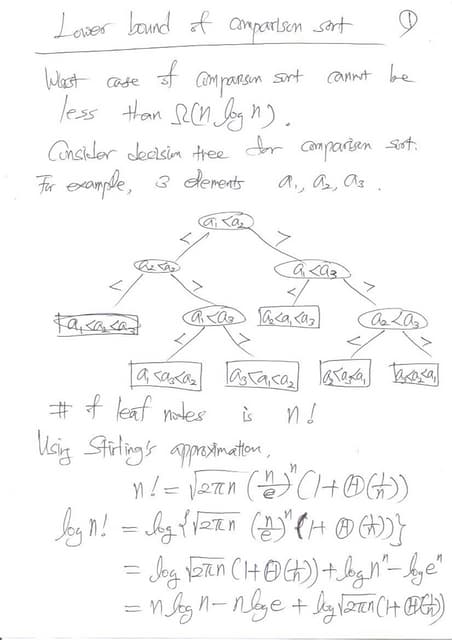 Lower bound of comparison sort ①
Worst case of comparison sort cannot be
less than Ω(n log n).
Consider decision tree for comparison sort.
For example, 3 elements a₁, a₂, a₃.
a₁<a₂
< >
a₂<a₃ a₁<a₃
< > < >
a₁<a₂<a₃ a₁<a₃ a₂<a₁<a₃ a₂<a₃
< > < >
a₁<a₃<a₂ a₃<a₁<a₂ a₂<a₃<a₁ a₃<a₂<a₁
# of leaf nodes is n!
Using Stirling's approximation,
n! = √2πn (n/e)ⁿ (1+Θ(1/n))
log n! = log{√2πn (n/e)ⁿ (1+Θ(1/n))}
= log √2πn (1+Θ(1/n)) + log nⁿ − log eⁿ
= n log n − n log e + log √2πn (1+Θ(1/n))